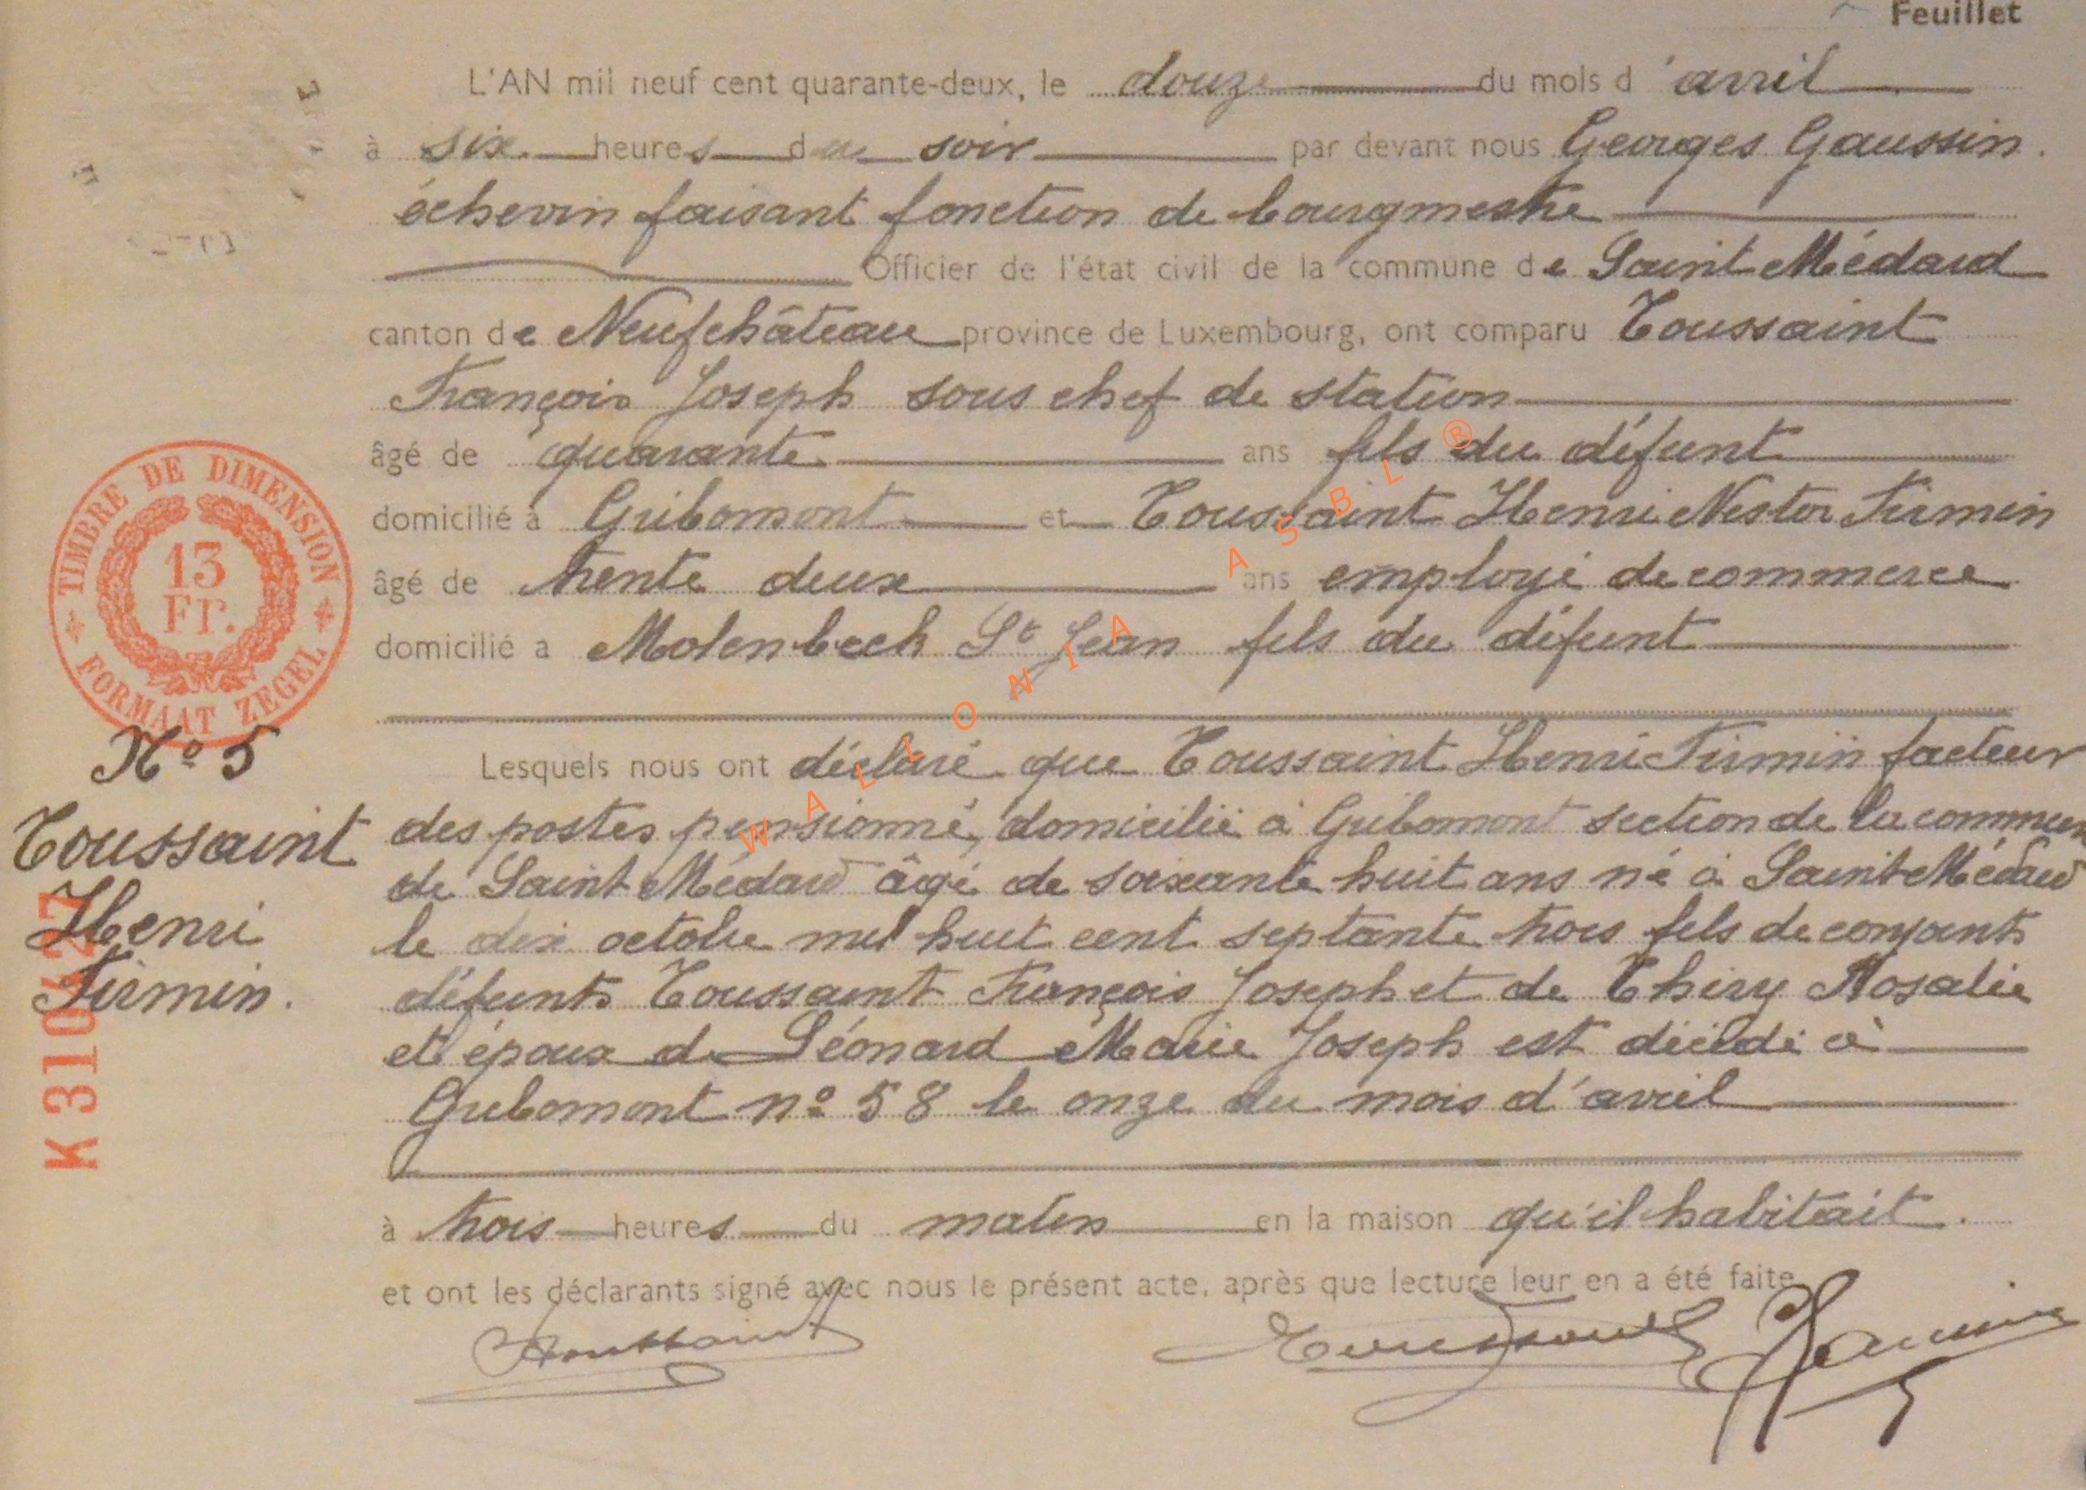 Feuillet
L'AN mil neuf cent quarante-deux, le douze du mois d'avril
à six heures du soir par devant nous Georges Gaussin
échevin faisant fonction de bourgmestre
Officier de l'état civil de la commune de Saint Médard
canton de Neufchâteau province de Luxembourg, ont comparu Toussaint
François Joseph sous chef de station
âgé de quarante ans fils du défunt
domicilié à Gribomont et Toussaint Henri Nestor Firmin
âgé de trente deux ans employé de commerce
domicilié a Molenbeek St Jean fils du défunt
Lesquels nous ont déclaré que Toussaint Henri Firmin facteur
des postes pensionné, domicilié à Gribomont section de la commune
de Saint Médard âgé de soixante huit ans né à Saint Médard
le dix octobre mil huit cent septante trois fils de conjoints
défunts Toussaint François Joseph et de Thiry Rosalie
et époux de Léonard Marie Joseph est décédé à
Gribomont no 58 le onze du mois d'avril
à trois heures du matin en la maison qu'il habitait.
et ont les déclarants signé avec nous le présent acte, après que lecture leur en a été faite
Toussaint Toussaint Gaussin
TIMBRE DE DIMENSION
13
Fr.
FORMAAT ZEGEL
No 5
Toussaint
Henri
Firmin.
WALLONIA ASBL ®